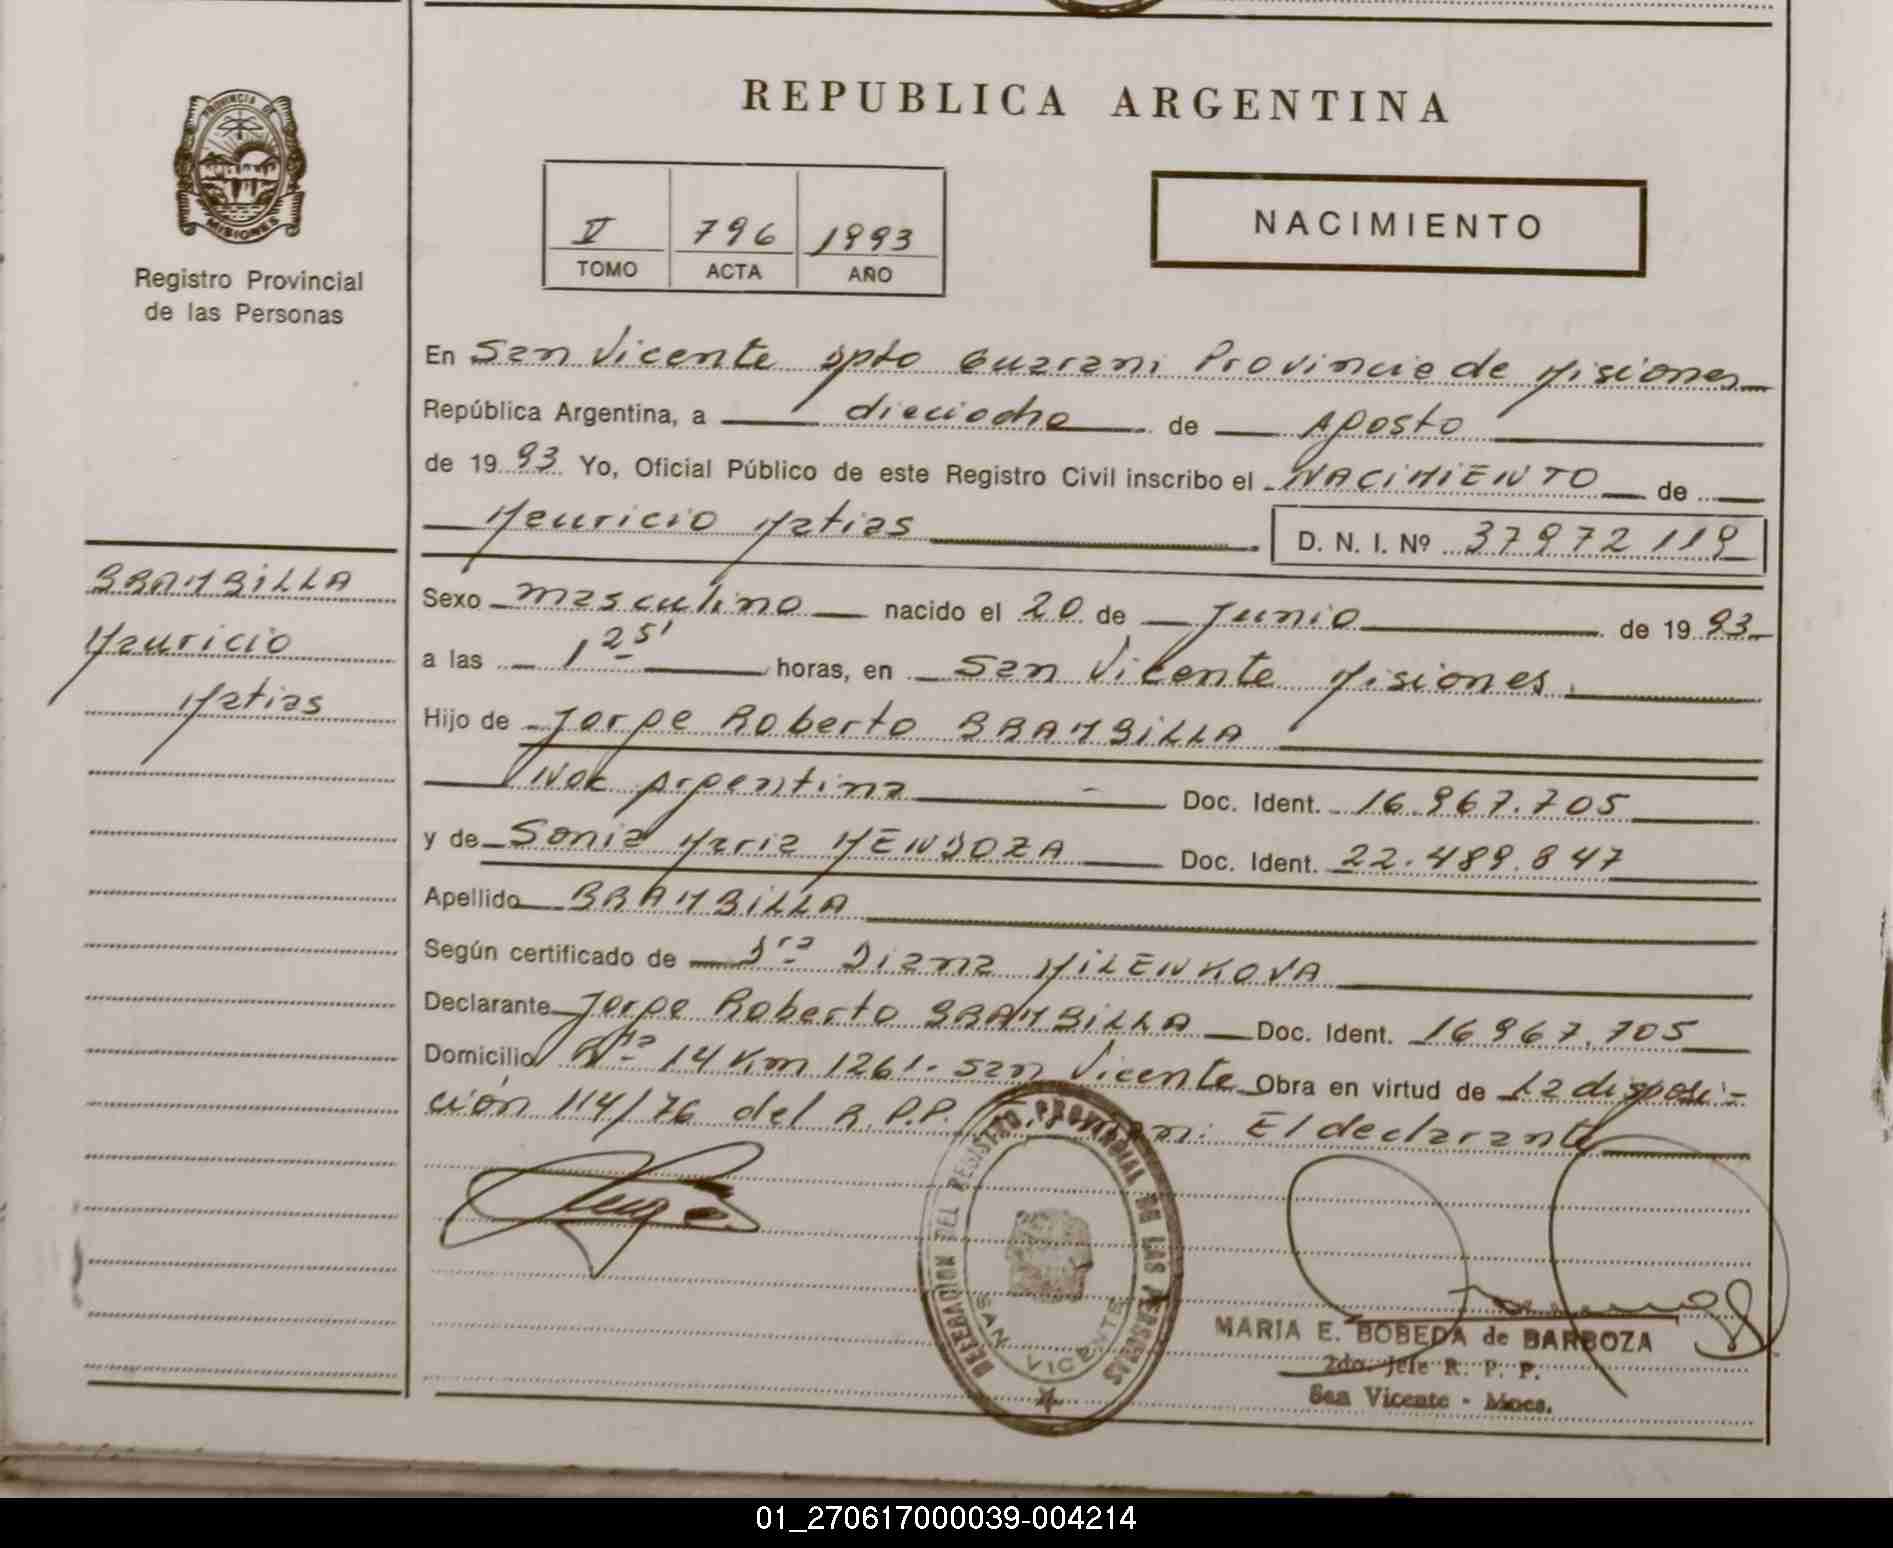 REPUBLICA ARGENTINA
PROVINCIA DE
MISIONES
Registro Provincial
de las Personas
V 796 1993
TOMO ACTA AÑO
NACIMIENTO
En San Vicente Dpto Guarani Provincia de Misiones
República Argentina, a dieciocho de Agosto
de 1993 Yo, Oficial Público de este Registro Civil inscribo el NACIMIENTO de
Mauricio Matias D. N. I. Nº 37972119
BRAMBILLA
Mauricio
Matias
Sexo masculino nacido el 20 de Junio de 1993
a las 1 25' horas, en San Vicente Misiones
Hijo de Jorge Roberto BRAMBILLA
Nac Argentina Doc. Ident. 16.967.705
y de Sonia Maria MENDOZA Doc. Ident. 22.489.847
Apellido BRAMBILLA
Según certificado de Dra Diana MILENKOVA
Declarante Jorge Roberto BRAMBILLA Doc. Ident. 16967.705
Domicilio Rta 14 Km 1261. San Vicente Obra en virtud de La disposi-
ción 114/76 del R.P.P. El declarante
DELEGACION DEL REGISTRO PROVINCIAL DE LAS PERSONAS
SAN VICENTE
MARIA E. BOBEDA de BARBOZA
2do. Jefe R. P. P.
San Vicente - Mnes.
01_270617000039-004214